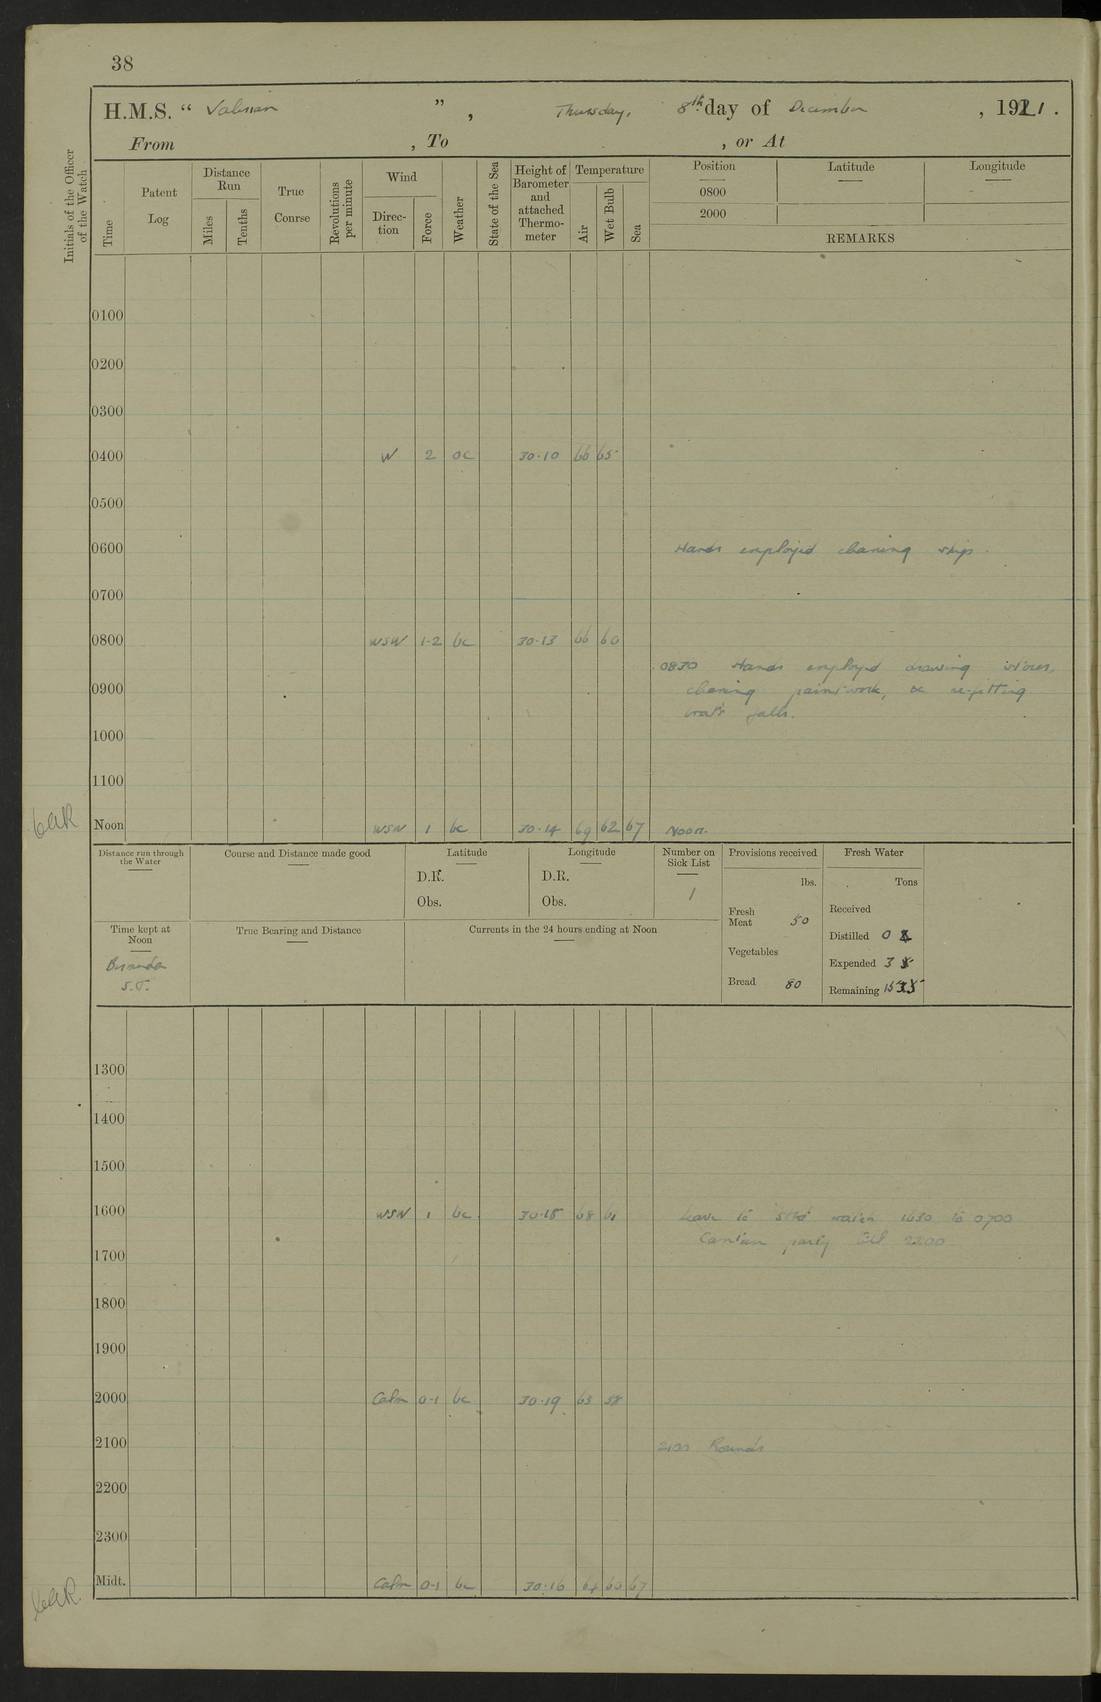 38
H.M.S. “ Valerian ”, Thursday, 8th day of December, 1921.
From , To , or At
Initials of the Officer of the Watch
Time
Patent Log
Distance Run
Miles
Tenths
True Course
Revolutions per minute
Wind
Direction
Force
Weather
State of the Sea
Height of Barometer and attached Thermometer
Temperature
Air
Wet Bulb
Sea
Position Latitude Longitude
0800
2000
REMARKS
0100
0200
0300
0400 W 2 oc 30.10 66 65
0500
0600 Hands employed cleaning ship.
0700
0800 WSW 1-2 bc 30.13 66 60
0830 Hands employed drawing stores,
0900 cleaning paintwork, & re-fitting
boat's falls.
1000
1100
Noon WSW 1 bc 30.14 69 62 67 Noon.
Distance run through the Water
Course and Distance made good
Latitude
D.R.
Obs.
Longitude
D.R.
Obs.
Number on Sick List
1
Provisions received
lbs.
Fresh Meat 50
Vegetables
Bread 80
Fresh Water
Tons
Received
Distilled 0
Expended 3
Remaining
Time kept at Noon
Bermuda
S.T.
True Bearing and Distance
Currents in the 24 hours ending at Noon
1300
1400
1500
1600 WSW 1 bc 30.18 68 61 Leave to Stbd watch 1630 to 0700
Canteen party till 2200
1700
1800
1900
2000 Calm 0-1 bc 30.19 63 58
2100 2100 Rounds
2200
2300
Midt. Calm 0-1 bc 30.16 64 60 67